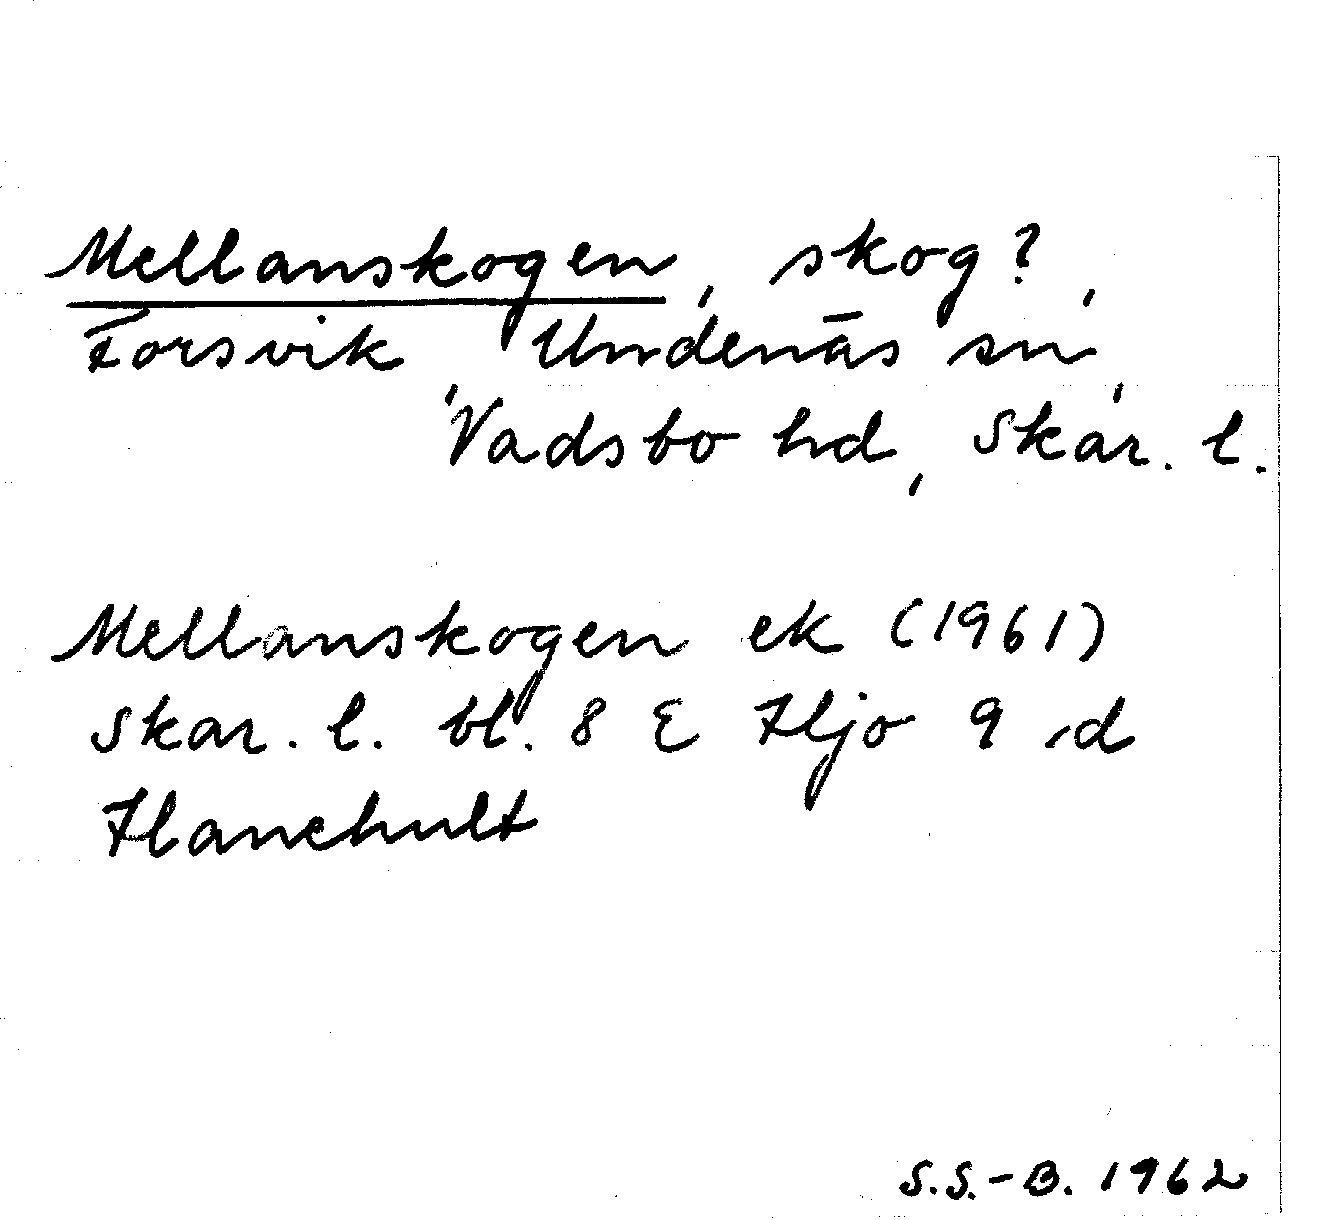 Mellanskogen, skog?,
Forsvik, Undenäs sn,
Vadsbo hd, Skar. l.
Mellanskogen ek (1961)
Skar. l. bl. 8 E Hjo 9 d
Hanehult
S.S.-B. 1962